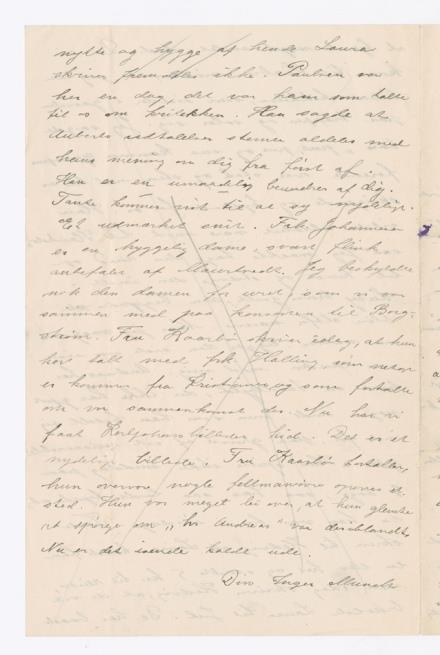 nytte og hygge af hende Laura
skriver fremdeles ikke. Paulsen var
her en dag, det var ham som talte
til os om kritikken. Han sagde at
Auberts udtalelser stemer aldeles med
hans mening om dig fra først af.
Han er en umaadelig beundrer af dig.
Tante kommer vist til at sy nydeligt.
Et udmærket snit. Frk. Johannesen
er en hyggelig dame, svært flink
anbefalet af
nok den damen for vred som vi var
sammen med paa koncerten til Berg-
strøm. Fru Kaarbø skriver idag, at hun
har talt med frk Halling, som netop
er kommen fra Kristiania, og som fortalte
om vor sammenkomst der. Nu har vi
faat billedet hid. Det er et
nydeligt billede. Fru Kaarbø fortalte,
hun overvar nogle feltmanøvre et
sted. Hun var meget lei over, at hun glemte
at spørge om „hr Andreas" var deriblandt.
Nu er det isende koldt ude.
Din Inger Munch